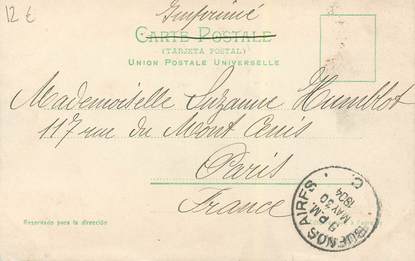 12 €
Imprimé
CARTE POSTALE
(TARJETA POSTAL)
UNION POSTALE UNIVERSELLE
Mademoiselle Suzanne Humblot
117 rue du Mont Cenis
Paris
France
BUENOS AIRES
9 P.M.
MAY 30
1904
C.
Reservado para la dirección